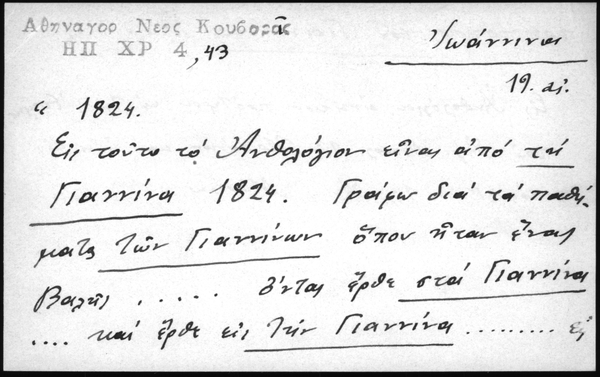 Αθηναγορ Νεος Κουβαρᾶ
ΗΠ ΧΡ 4,43
Ἰωάννινα
19. αἰ.
“ 1824.
Εἰς τοῦτο τό Ἀνθολόγιον εἶναι ἀπό τά
Γιαννίνα 1824. Γράφω διά τά παθή-
ματα τῶν Γιαννίνων ὅπου ἦταν ἕνας
Βαλῆς ..... ὄντας ἦρθε στά Γιαννίνα
.... καί ἦρθε εἰς τήν Γιαννίνα ......... εἰς